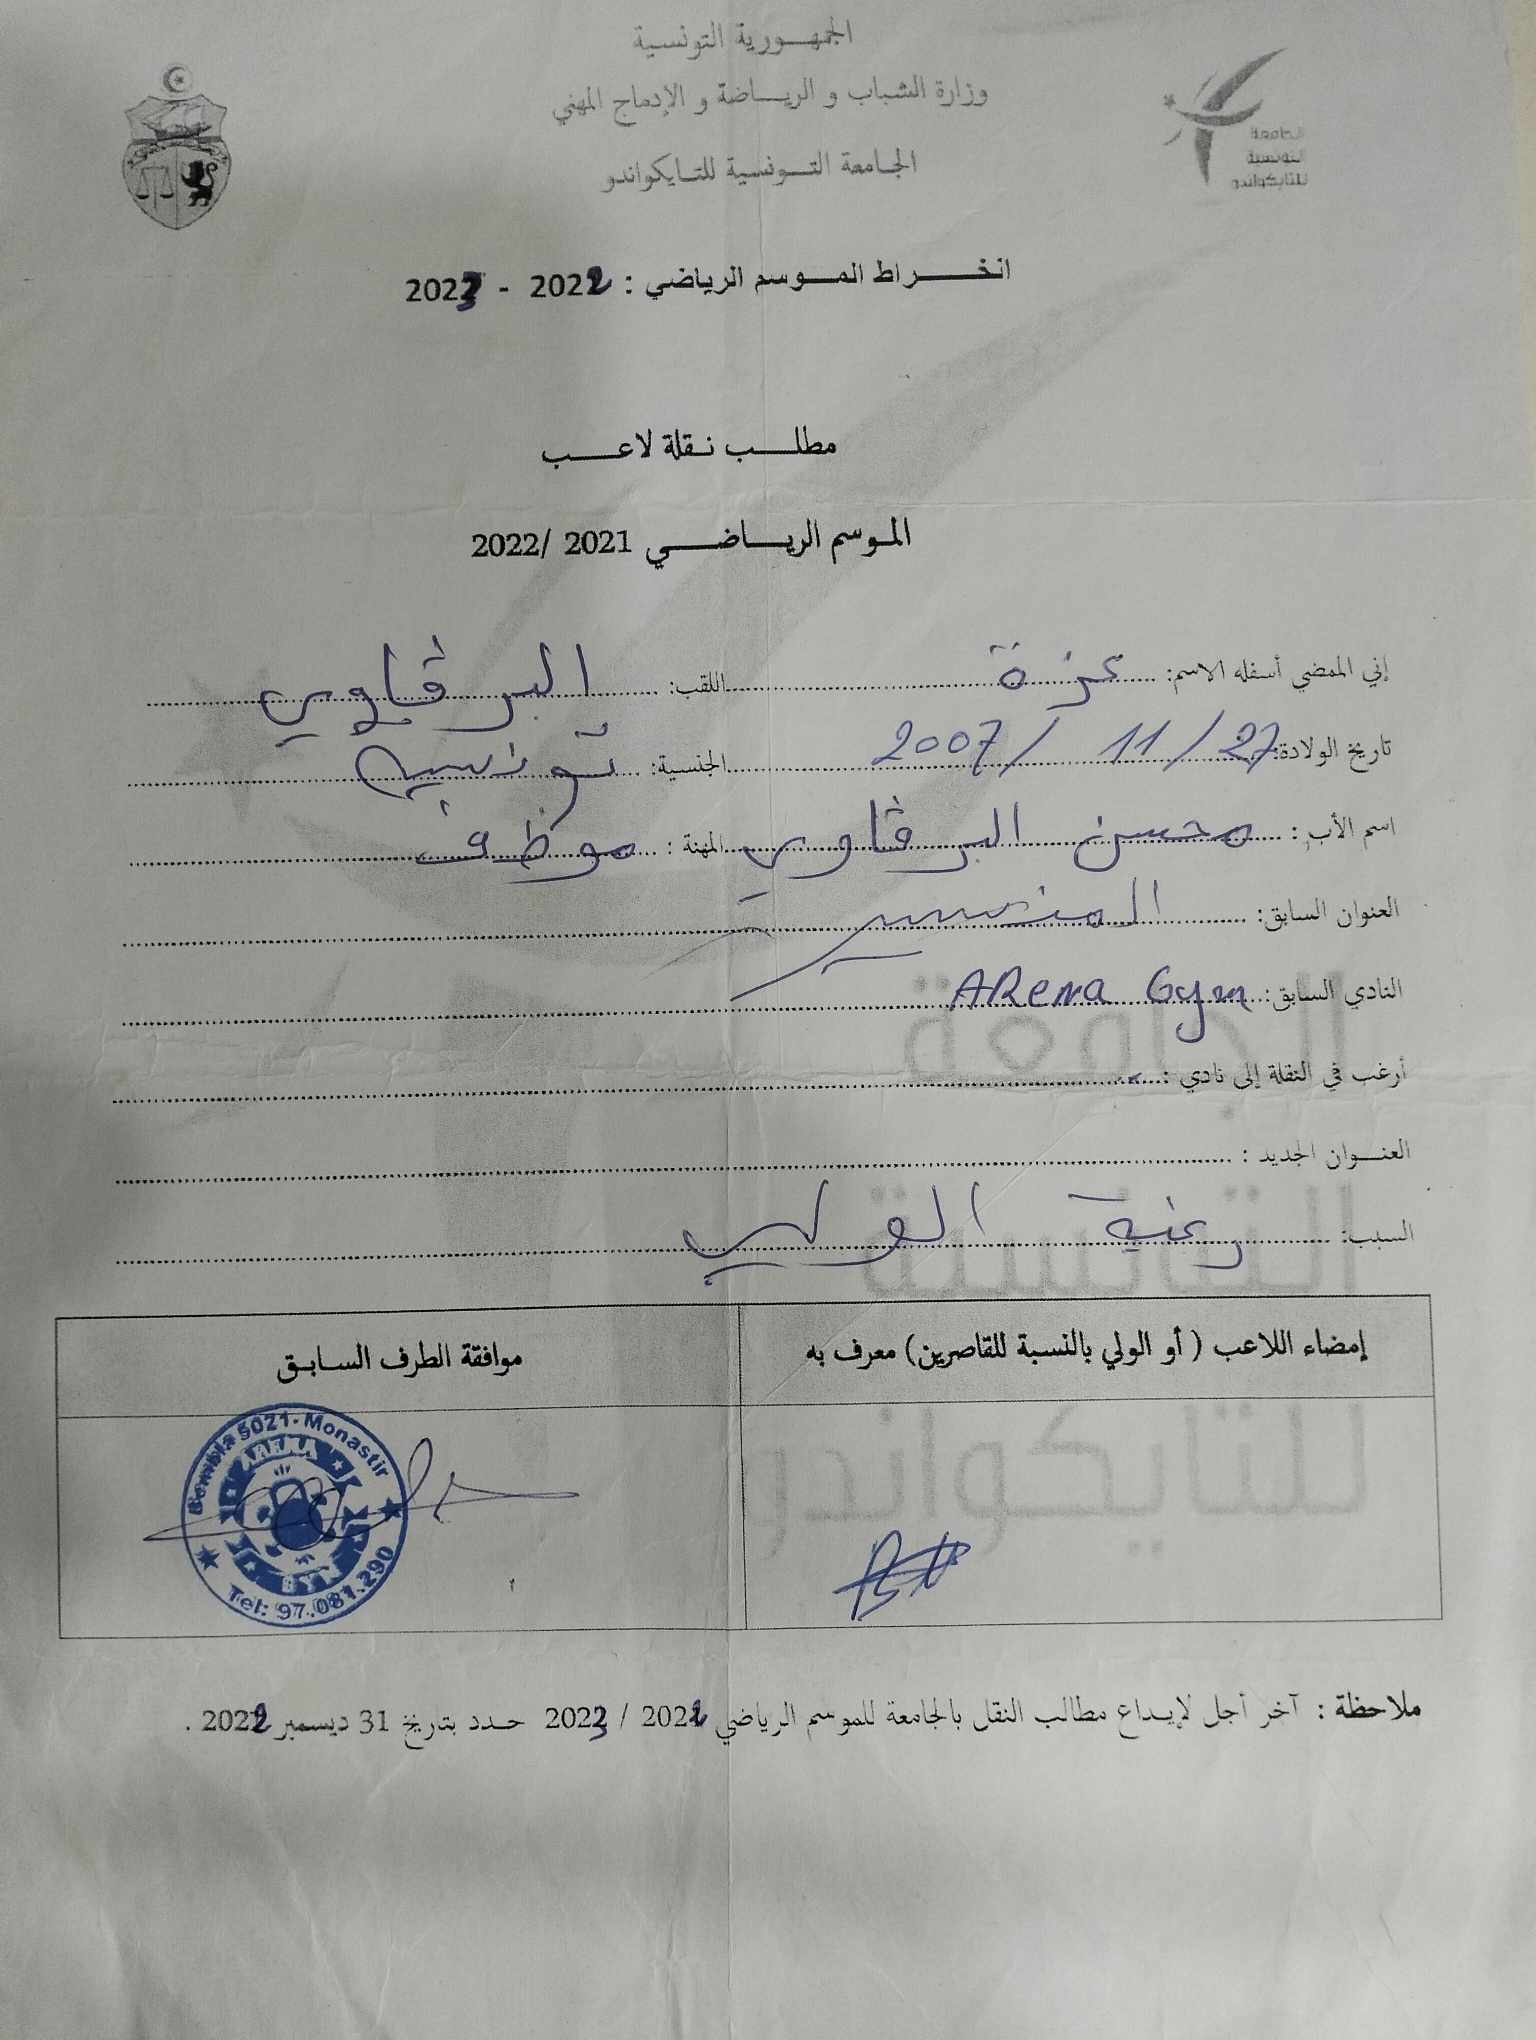 الجمهورية التونسية
وزارة الشباب و الرياضة و الإدماج المهني
الجامعة التونسية للتايكواندو
الجامعة
التونسية
للتايكواندو
انخراط الموسم الرياضي : 2022 - 2023
مطلب نقلة لاعب
الموسم الرياضي 2021 /2022
إني الممضي أسفله الاسم: عزة اللقب: البرقاوي
تاريخ الولادة: 27/ 11 / 2007 الجنسية: تونسية
اسم الأب: محسن البرقاوي المهنة : موظف
العنوان السابق: المنستير
النادي السابق: ARena Gym
أرغب في النقلة إلى نادي :
العنوان الجديد :
السبب: رغبة الولي
إمضاء اللاعب ( أو الولي بالنسبة للقاصرين) معرف به
موافقة الطرف السابق
Bembla 5021. Monastir
ARENA
GYM
Tel: 97.081.290
ملاحظة : آخر أجل لإيداع مطالب النقل بالجامعة للموسم الرياضي 2022 / 2023 حدد بتاريخ 31 ديسمبر 2022 .